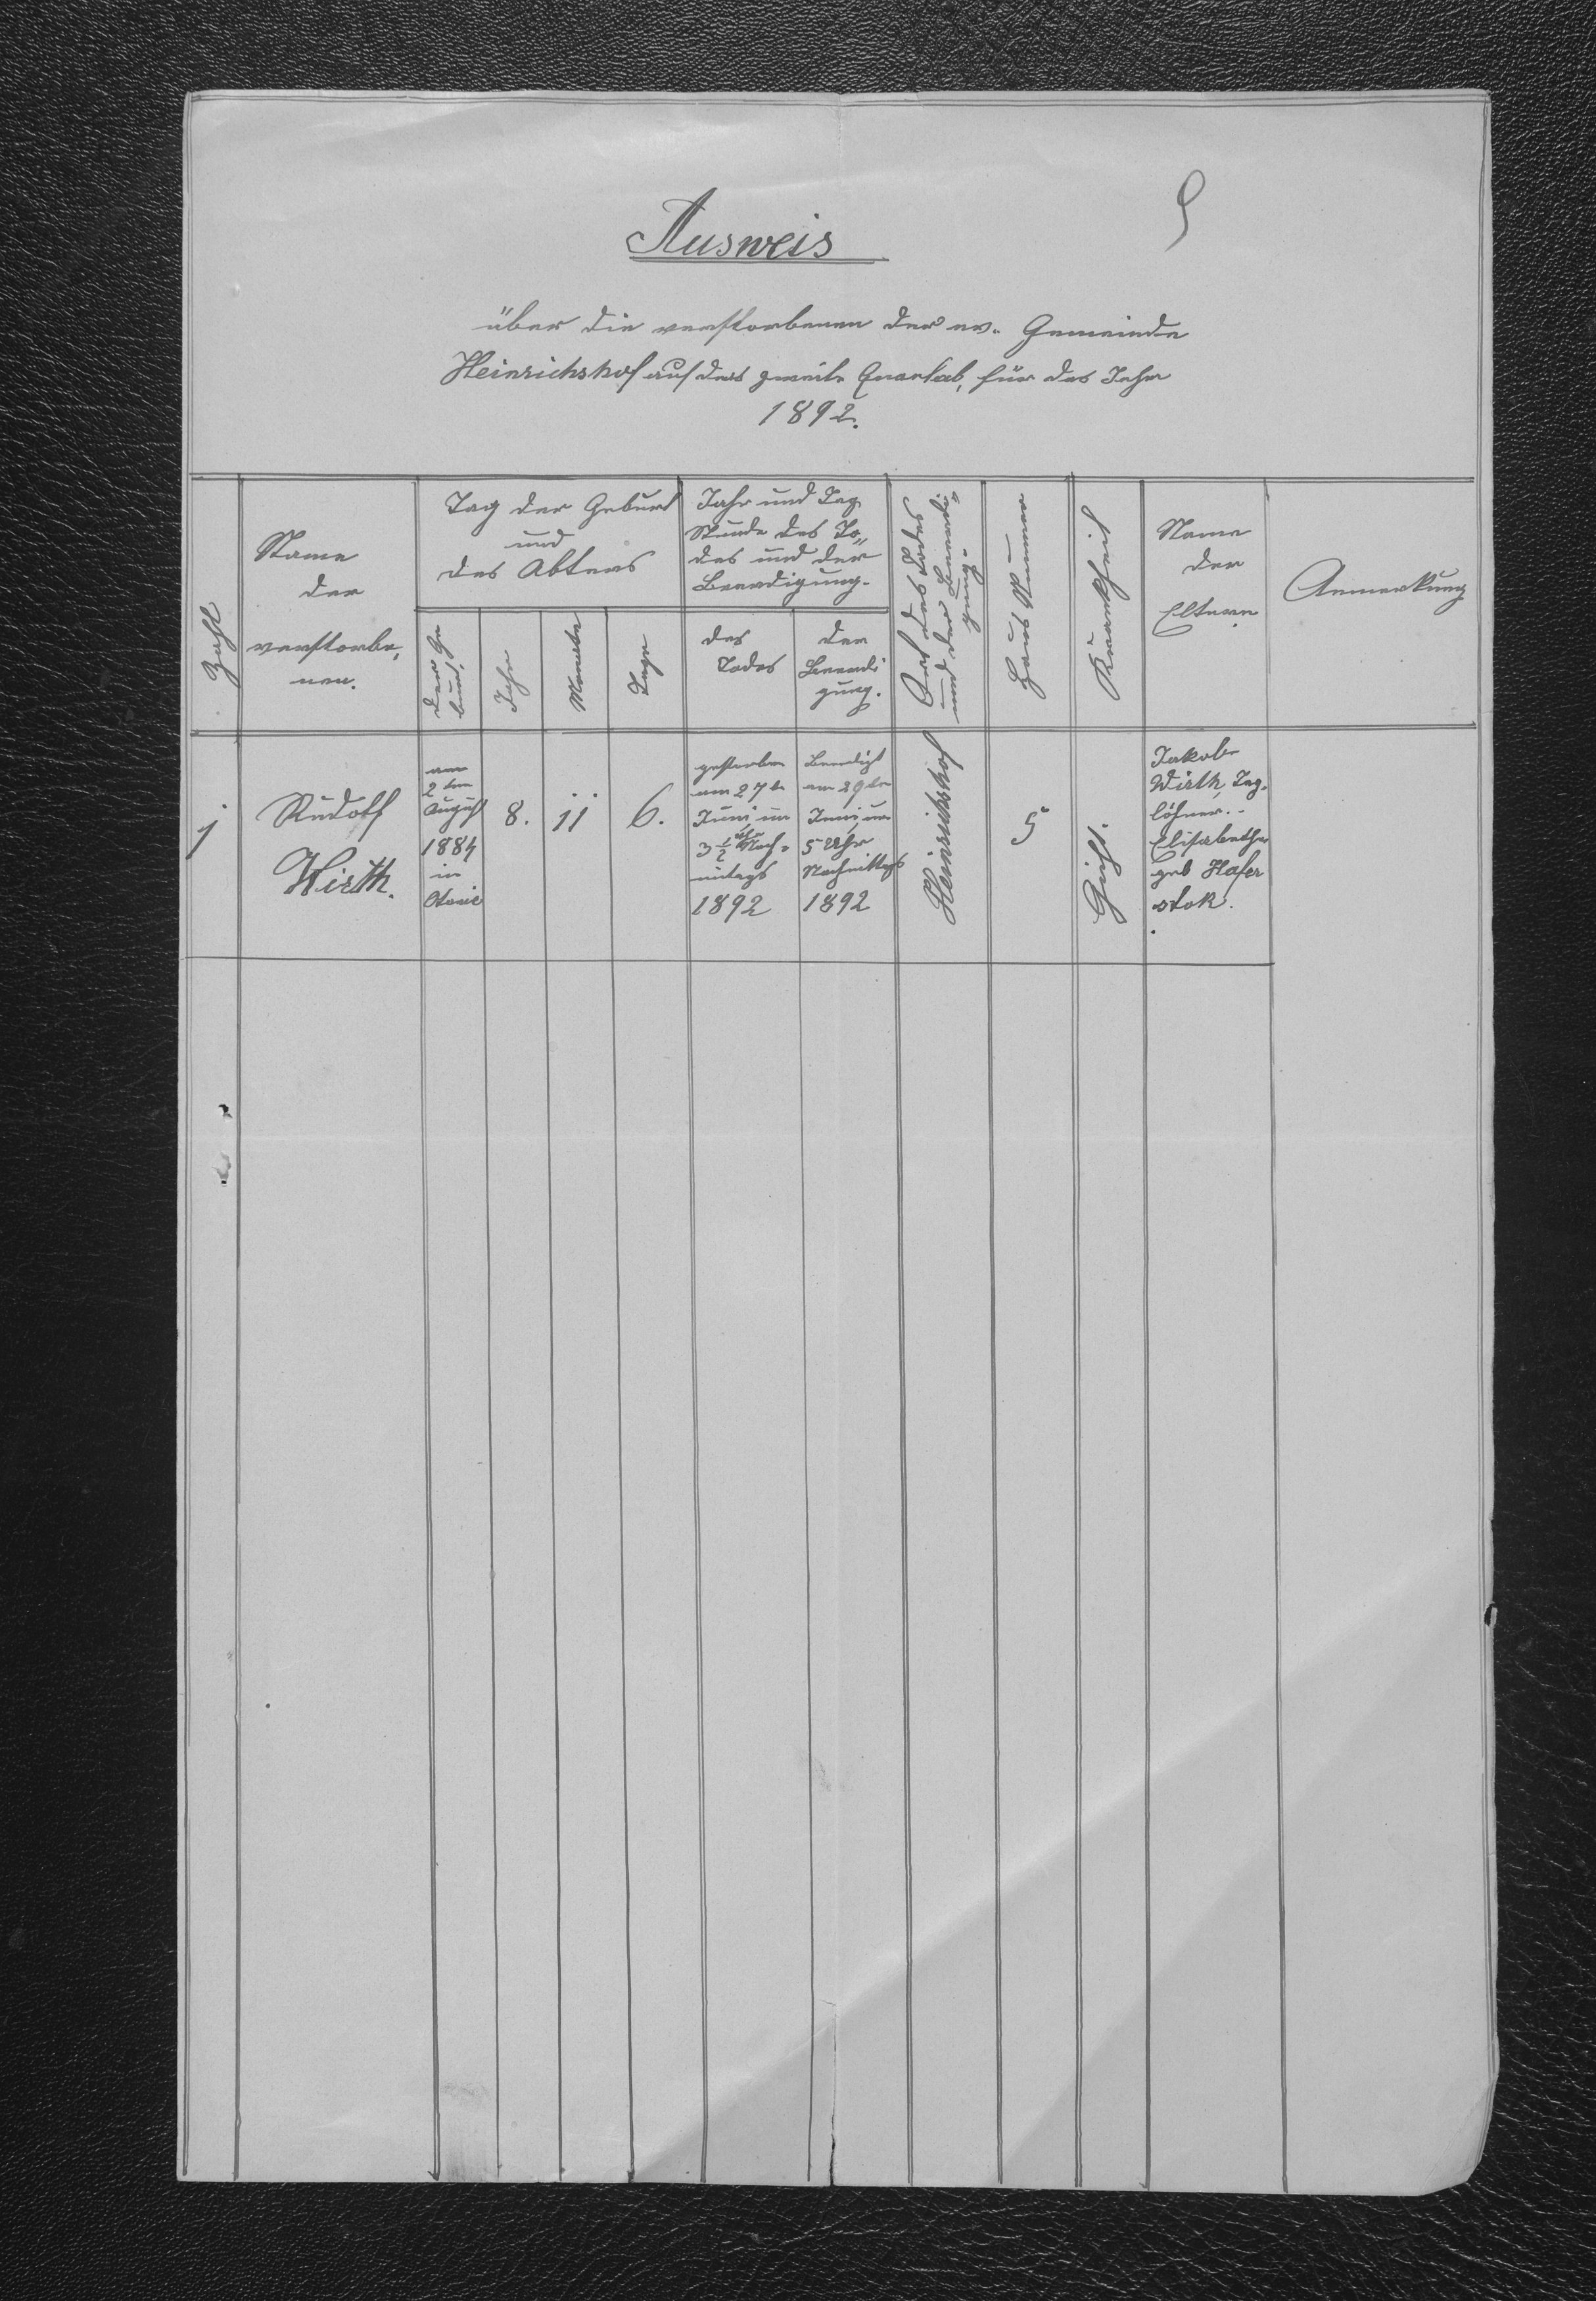 9
Ausweis
über die verstorbenen der ev. Gemeinde
Heinrichshof auf das zweite Quartal, für das Jahr
1892.
Zahl
Name
der
verstorbe,
nen.
Tag der Geburt
und
des Alters
der Ge
burt,
Jahr
Monate
Tage
Jahr und Tag
Stunde des To„
des und der
Beerdigung.
des
Todes
der
Beerdi
gung.
Ort des Todes
und der Beerdi„
gung.
Haus Nummer
Krankheit
Name
der
Eltern
Anmerkung
1
Rudolf
Wirth.
am
2ten
August
1884
in
8.
11
6.
gestorben
am 27te
Juni um
3 1/2 Uhr Nach=
mitags
1892
Beerdigt
am 29te
Juni, um
5 Uhr
Nachmittags
1892
Heinrichshof
5
Gicht.
Jakob
Wirth, Tag.
löhner..
Elisabetha
geb Hafer
stok.